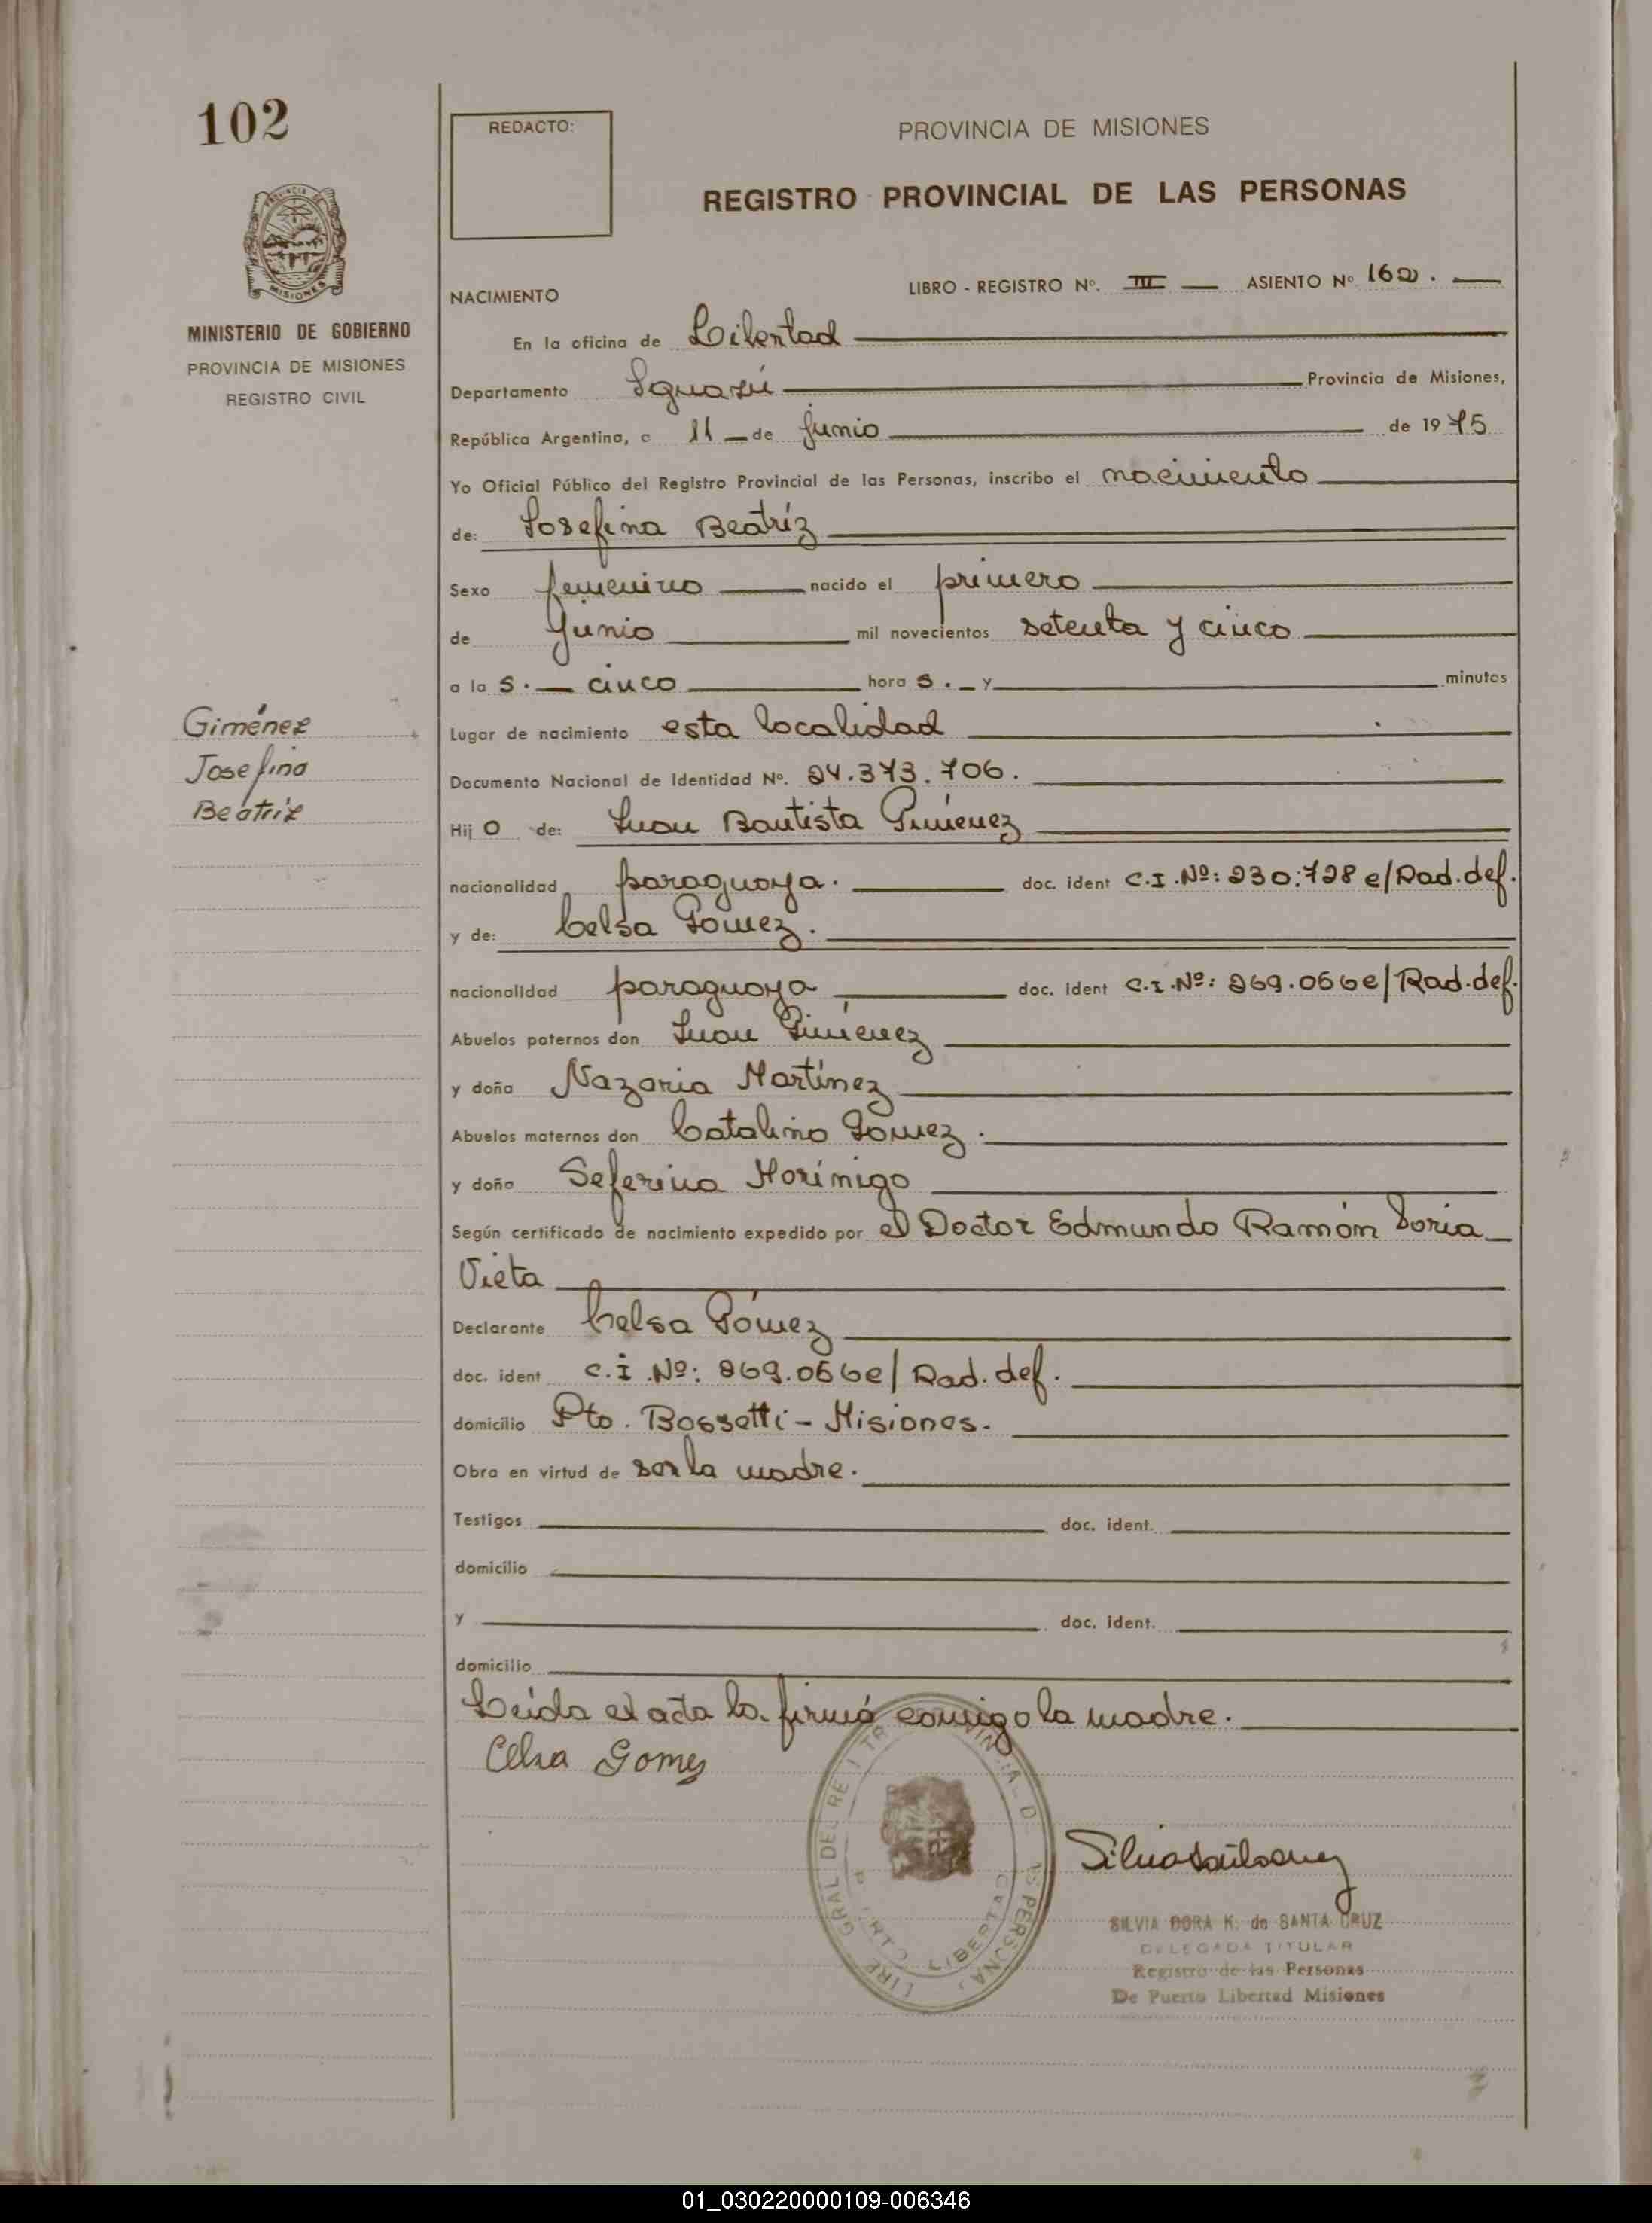 102
REDACTO:
PROVINCIA DE MISIONES
REGISTRO PROVINCIAL DE LAS PERSONAS
MINISTERIO DE GOBIERNO
PROVINCIA DE MISIONES
REGISTRO CIVIL
LIBRO - REGISTRO Nº. III — ASIENTO Nº 162. —
NACIMIENTO
En la oficina de Libertad
Departamento Iguazú Provincia de Misiones,
República Argentina, a 11 — de Junio de 1975
Yo Oficial Público del Registro Provincial de las Personas, inscribo el nacimiento
de: Josefina Beatríz
Sexo femenino nacido el primero
de Junio mil novecientos setenta y cinco
a la s. — cinco hora s. — y minutos
Giménez
Josefina
Beatríz
Lugar de nacimiento esta localidad
Documento Nacional de Identidad Nº. 24.373.706.
Hij o de: Juan Bautista Giménez
nacionalidad paraguaya. doc. ident C.I.Nº: 230.728 e/Rad.def.
y de: Celsa Gomez.
nacionalidad paraguaya doc. ident C.I.Nº: 269.056 e/Rad.def.
Abuelos paternos don Juan Giménez
y doña Nazaria Martínez
Abuelos maternos don Catalino Gomez.
y doña Seferina Morínigo
Según certificado de nacimiento expedido por el Doctor Edmundo Ramón Soria
Vieta
Declarante Celsa Gómez
doc. ident C.I.Nº: 269.056 e/Rad. def.
domicilio Pto. Bossetti - Misiones.
Obra en virtud de ser la madre.
Testigos doc. ident.
domicilio
y doc. ident.
domicilio
Leida el acta la firmó conmigo la madre.
Celsa Gomes
SILVIA DORA K. de SANTA CRUZ
DELEGADA TITULAR
Registro de las Personas
De Puerto Libertad Misiones
01_030220000109-006346